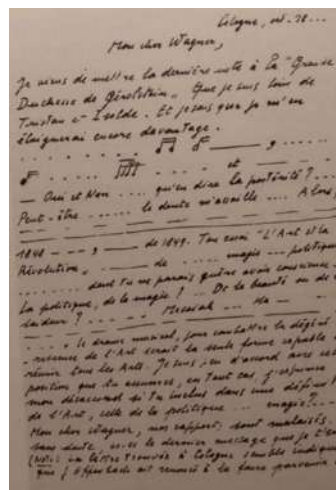 Cologne, oct. 18...
Mon cher Wagner,
Je viens de mettre la dernière note à La "Grande
Duchesse de Gérolstein". Que je suis loin de
Tristan et Isolde. Et je sais que je m'en
éloignerai encore davantage.
. . . . . . . . . , . . . .
. . . . . . . et
— Oui et Non .... qu'en dira la postérité ? ...
Peut-être ...... le doute m'assaille .... Alors,
1848 — — , — de 1849. Ton essai "L'Art et la
Révolution", — de ..... magie ... politique
...... dont tu ne parais guère avoir conscience.
La politique, de la magie ? .. De la beauté ou de
laideur ? .... Messiah — Ma —
...... le drame musical, pour combattre la dégén
rescence de l'Art serait la seule forme capable
réunir tous les Arts. Je suis, en d'accord avec cette
position que tu assumes, en tout cas, j'exprime
mon désaccord si tu inclus dans une défin
de l'Art, celle de la politique ... magie ? ..
Mon cher Wagner, nos rapports sont malaisés.
sans doute, est-ce le dernier message que je t'en
(Note: la lettre trouvée à Cologne semble indiquer
que J. Offenbach ait renoncé à la faire parvenir